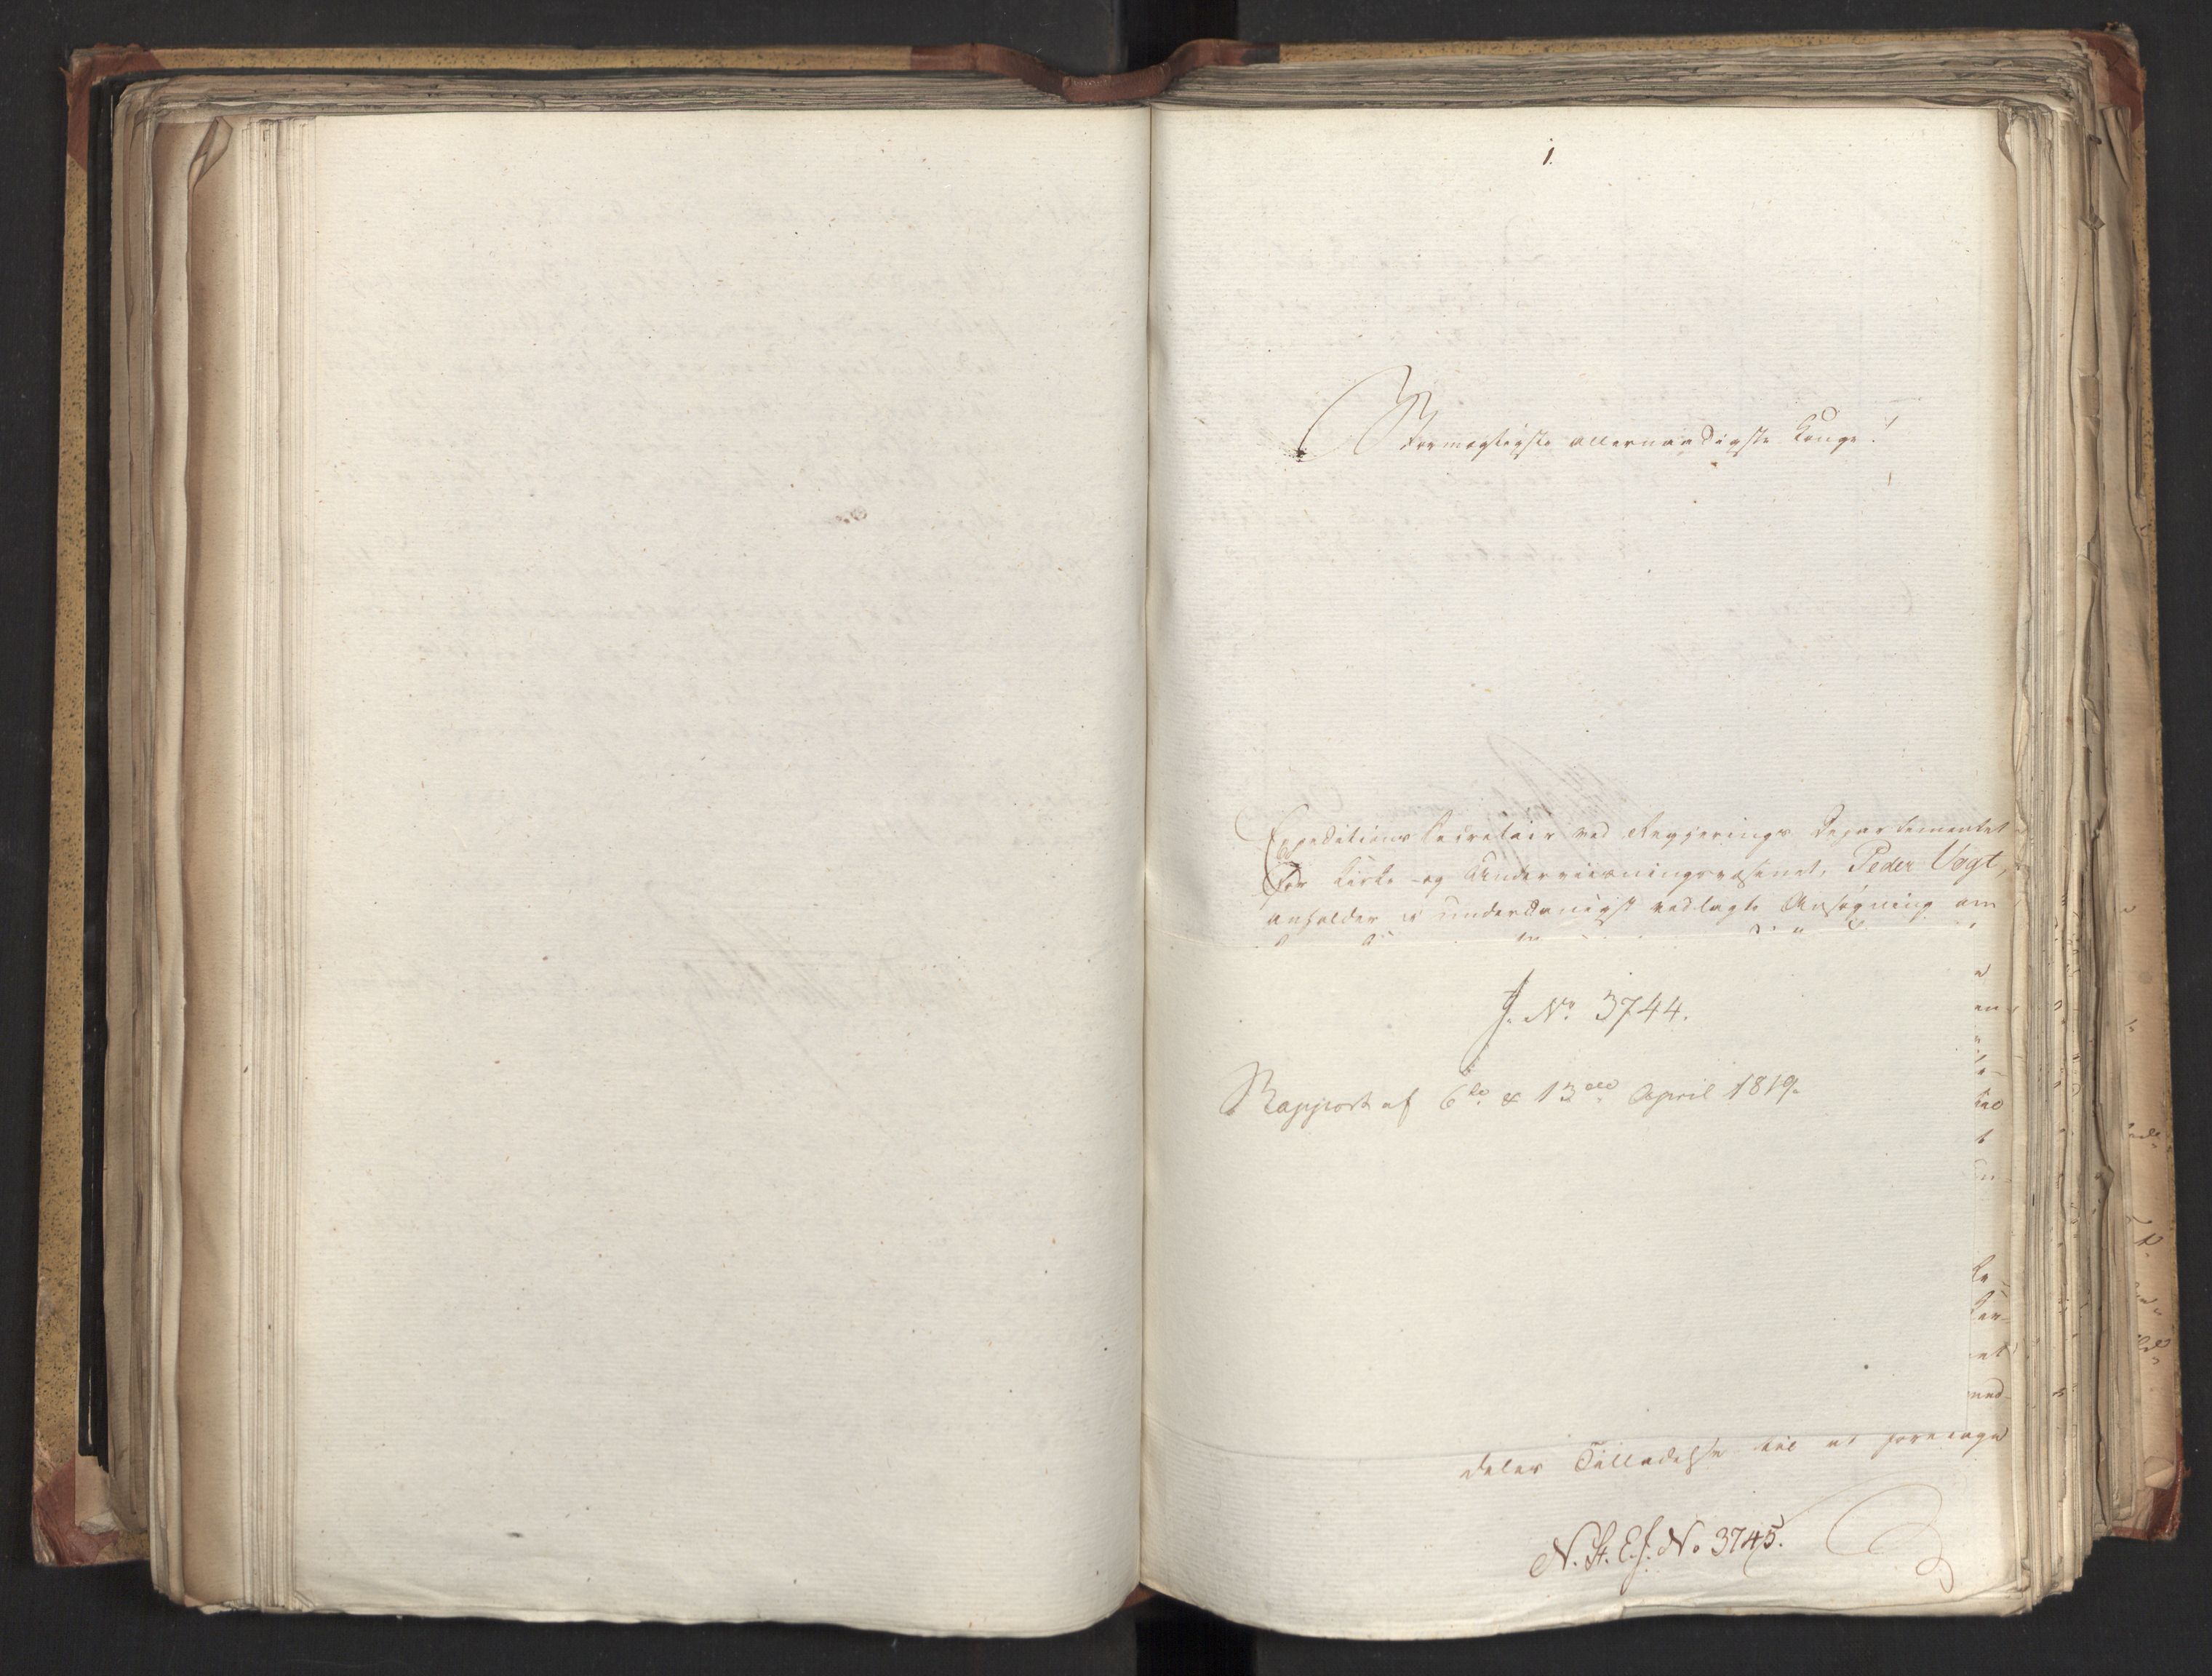 1.
Stormægtigste allernaadigste Konge!
Expeditions Secretair ved Regjerings Departementet
for Kirke- og Underviisningsvæsenet, Peder Vogt,
anholder i underdanigst vedlagte Ansøgning om
J. No. 3744.
Rapport af 6te & 13de April 1819.
deles Tilladelse til at foretage
N. St. E. J. No 3745.